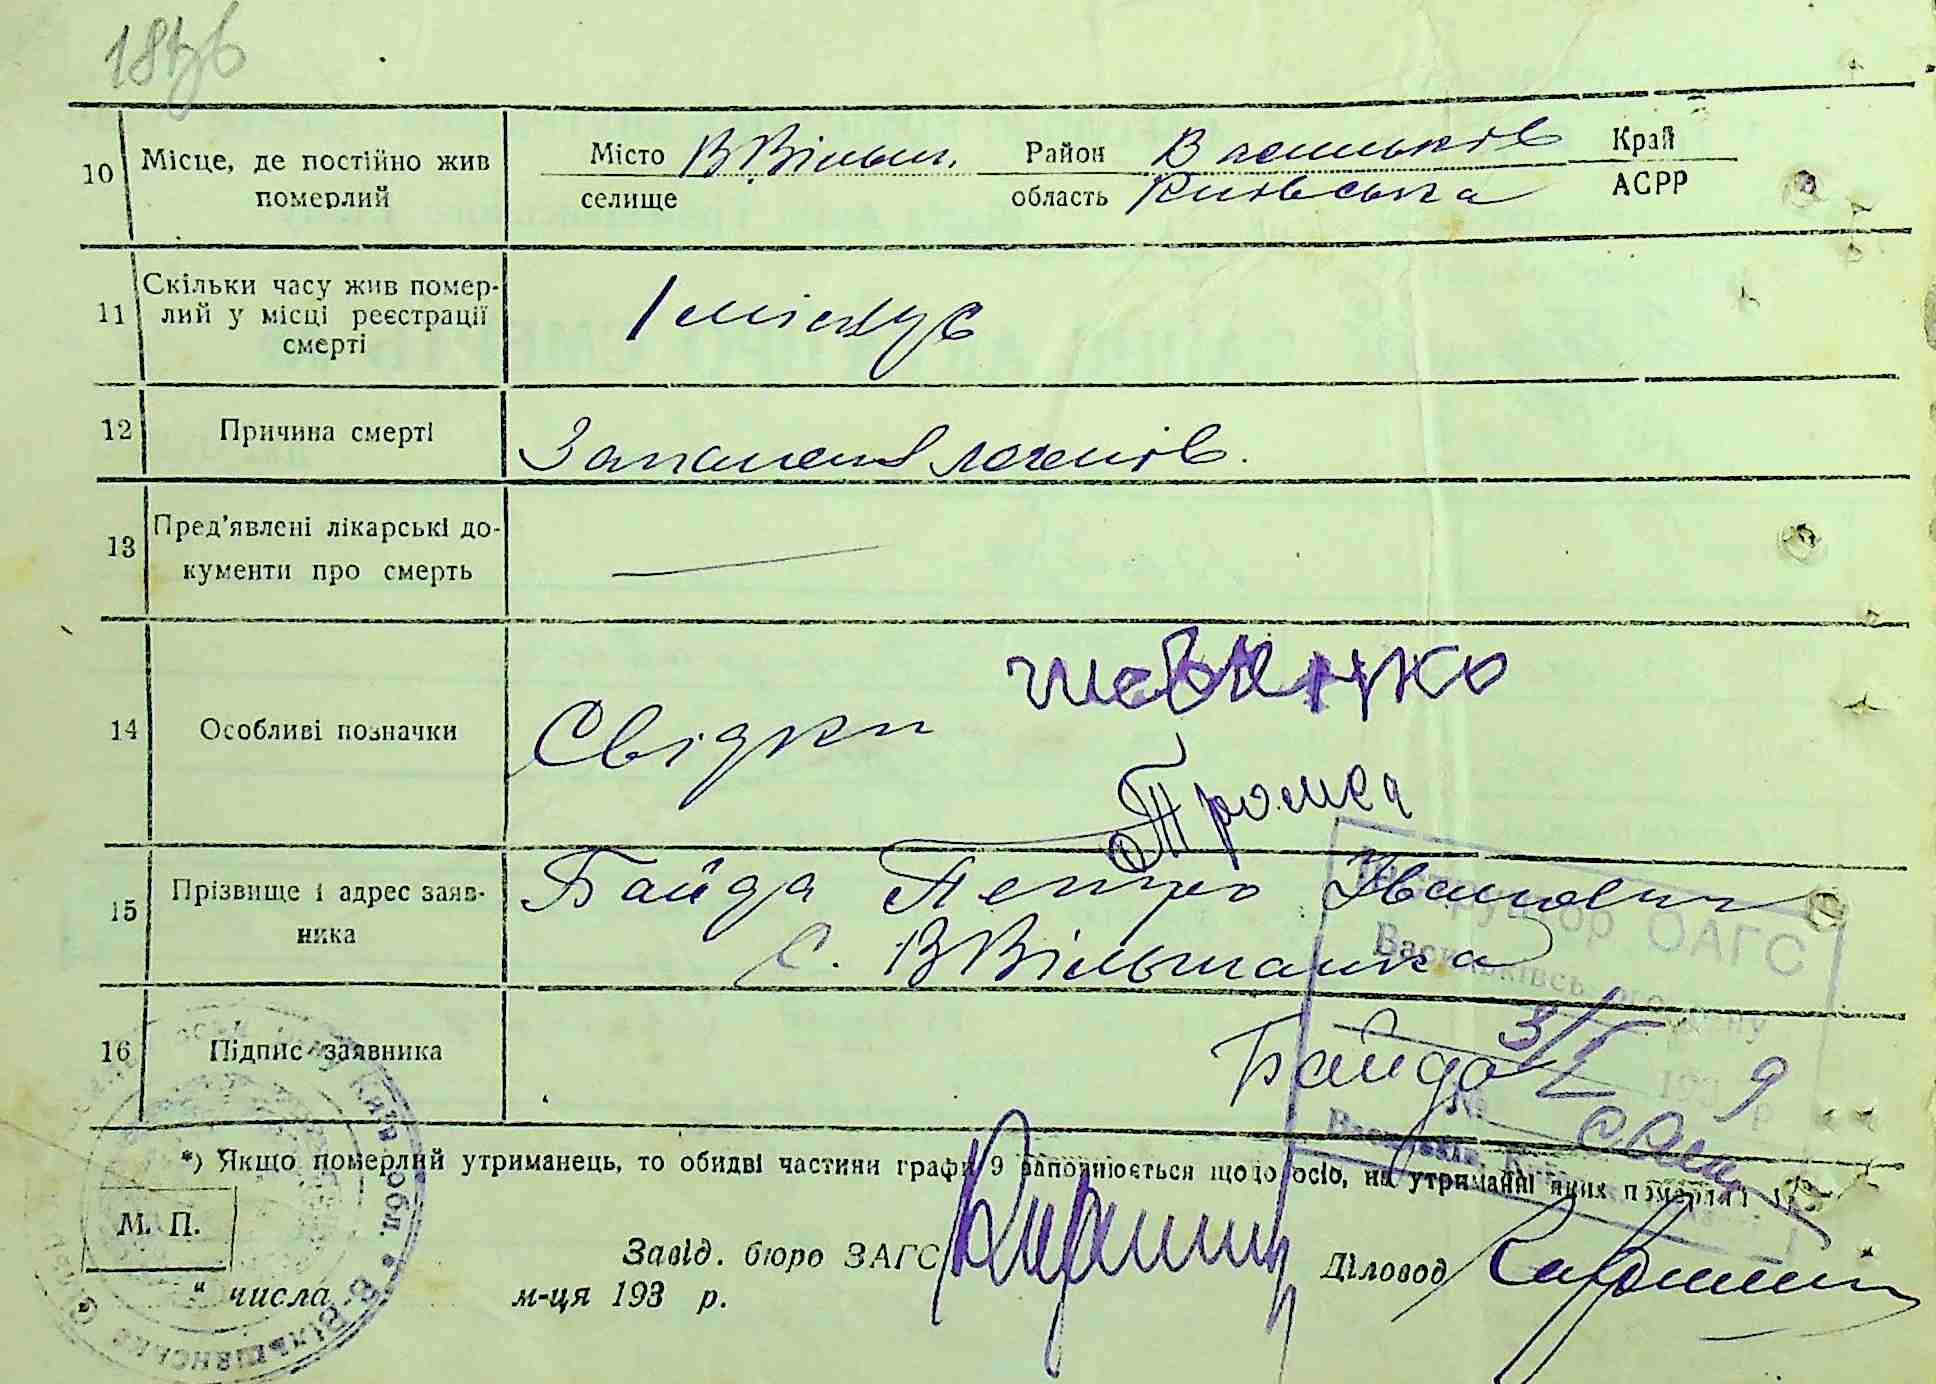 10 Місце, де постійно жив померлий
Місто В Вільш. Район Васильків Край
селище область Київська АСРР
11 Скільки часу жив помер-
лий у місці реєстрації
смерті
1 місяць
12 Причина смерті Запалення легенів.
13 Пред'явлені лікарські до-
кументи про смерть —
14 Особливі позначки Свідки
15 Прізвище і адрес заяв-
ника
Байда Петро Іванович
с. В Вільшанка
Інструктор ОАГС
Васильківського району
3/V 193 9 р
16 Підпис заявника Байда
*) Якщо померлий утриманець, то обидві частини графи 9 заповнюється щодо осіб, на утриманні яких померлий
М. П.
Завід. бюро ЗАГС Діловод
" числа м-ця 193 р.